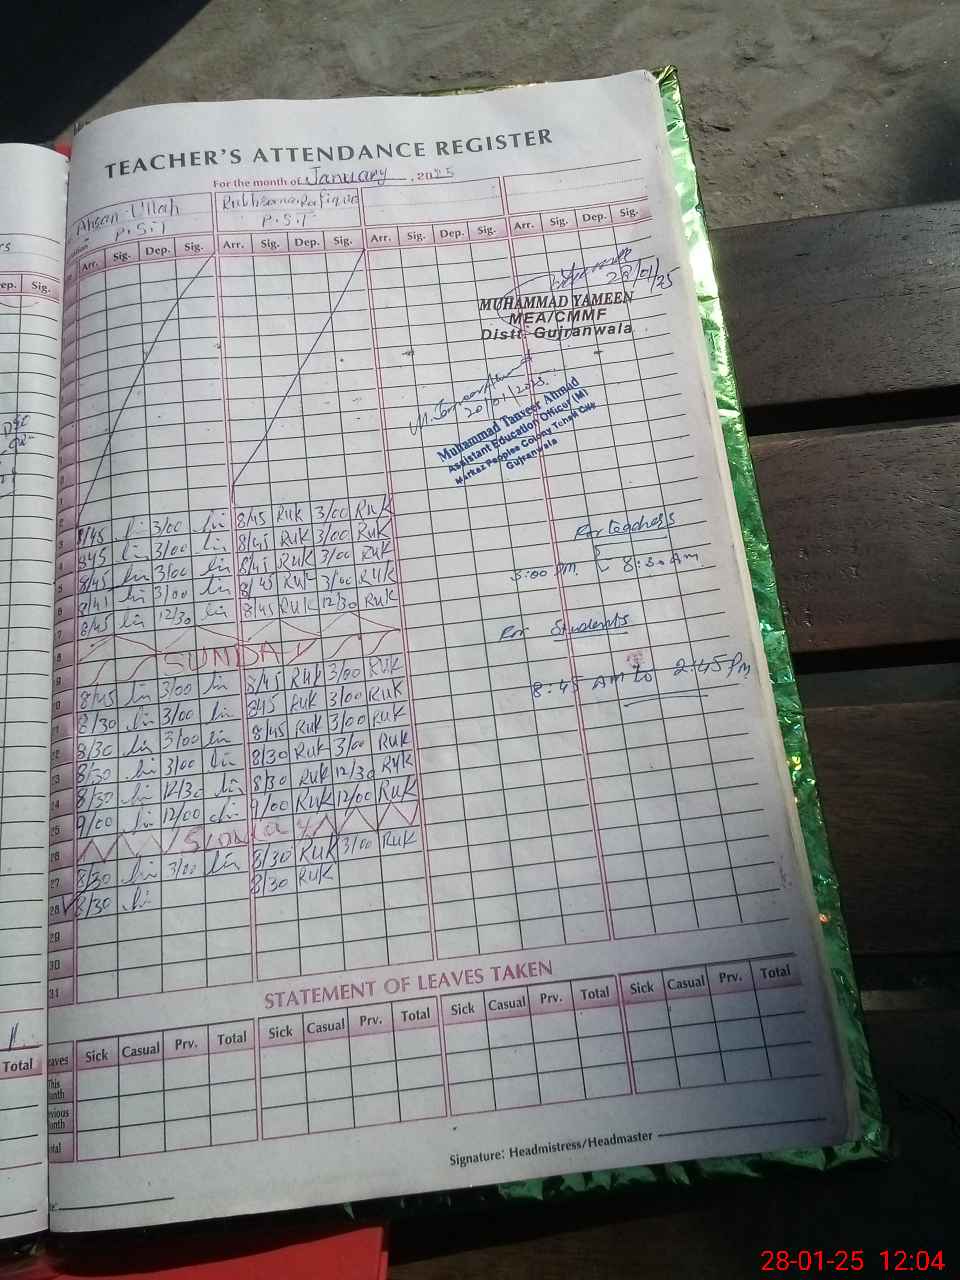 TEACHER'S ATTENDANCE REGISTER
For the month of January, 2025
Ahsan Ullah Rukhsana Rafique
P.S.T P.S.T
Arr. Sig. Dep. Sig. Arr. Sig. Dep. Sig. Arr. Sig. Dep. Sig. Arr. Sig. Dep. Sig.
ep. Sig.
28/01/25
MUHAMMAD YAMEEN
MEA/CMMF
Distt: Gujranwala
20/01/2025
Muhammad Tanveer Ahmad
Assistant Education Officer (M)
Markaz Peoples Colony Tehsil City
Gujranwala
8/45 3/00 8/45 RUK 3/00 RUK
8/45 3/00 8/45 RUK 3/00 RUK
8/45 3/00 8/45 RUK 3/00 RUK
8/45 3/00 8/45 RUK 3/00 RUK
8/45 12/30 8/45 RUK 12/30 RUK
For teachers
3:00 PM. 8:30 Am.
SUNDAY
For Students
8:45 AM to 2:45 Pm
8/45 3/00 8/45 RUK 3/00 RUK
8/30 3/00 8/45 RUK 3/00 RUK
8/30 3/00 8/45 RUK 3/00 RUK
8/30 3/00 8/30 RUK 3/00 RUK
8/30 12/30 8/30 RUK 12/30 RUK
9/00 12/00 9/00 RUK 12/00 RUK
Sunday
8/30 3/00 8/30 RUK 3/00 RUK
28 8/30 8/30 RUK
29
30
31
STATEMENT OF LEAVES TAKEN
Leaves Sick Casual Prv. Total Sick Casual Prv. Total Sick Casual Prv. Total Sick Casual Prv. Total
Total
This
Month
Previous
Month
Total
Signature: Headmistress/Headmaster
28-01-25 12:04